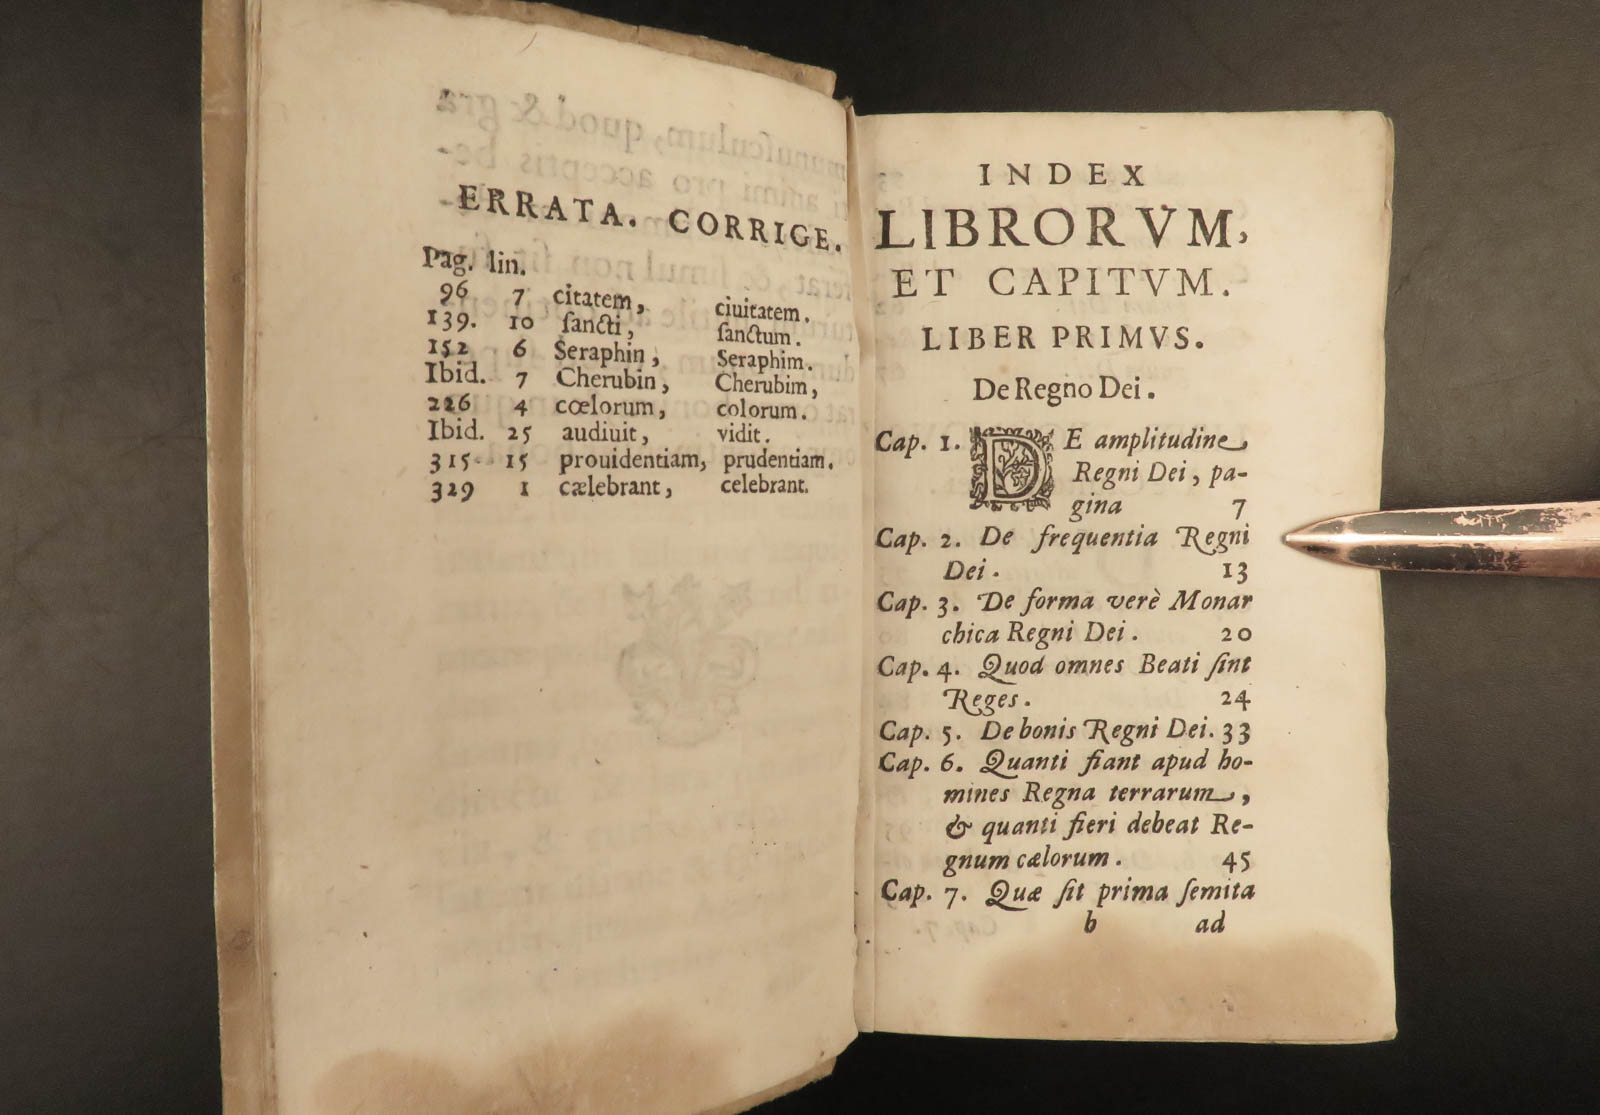 ERRATA. CORRIGE.
Pag. lin.
96 7 citatem, ciuitatem.
139. 10 ſancti, ſanctum.
152 6 Seraphin, Seraphim.
Ibid. 7 Cherubin, Cherubim,
226 4 cœlorum, colorum.
Ibid. 25 audiuit, vidit.
315 15 prouidentiam, prudentiam.
329 1 cælebrant, celebrant.
INDEX
LIBRORVM,
ET CAPITVM.
LIBER PRIMVS.
De Regno Dei.
Cap. 1. DE amplitudine
Regni Dei, pa-
gina 7
Cap. 2. De frequentia Regni
Dei. 13
Cap. 3. De forma verè Monar
chica Regni Dei. 20
Cap. 4. Quod omnes Beati ſint
Reges. 24
Cap. 5. De bonis Regni Dei. 33
Cap. 6. Quanti fiant apud ho-
mines Regna terrarum,
& quanti fieri debeat Re-
gnum cælorum. 45
Cap. 7. Quæ ſit prima ſemita
b ad